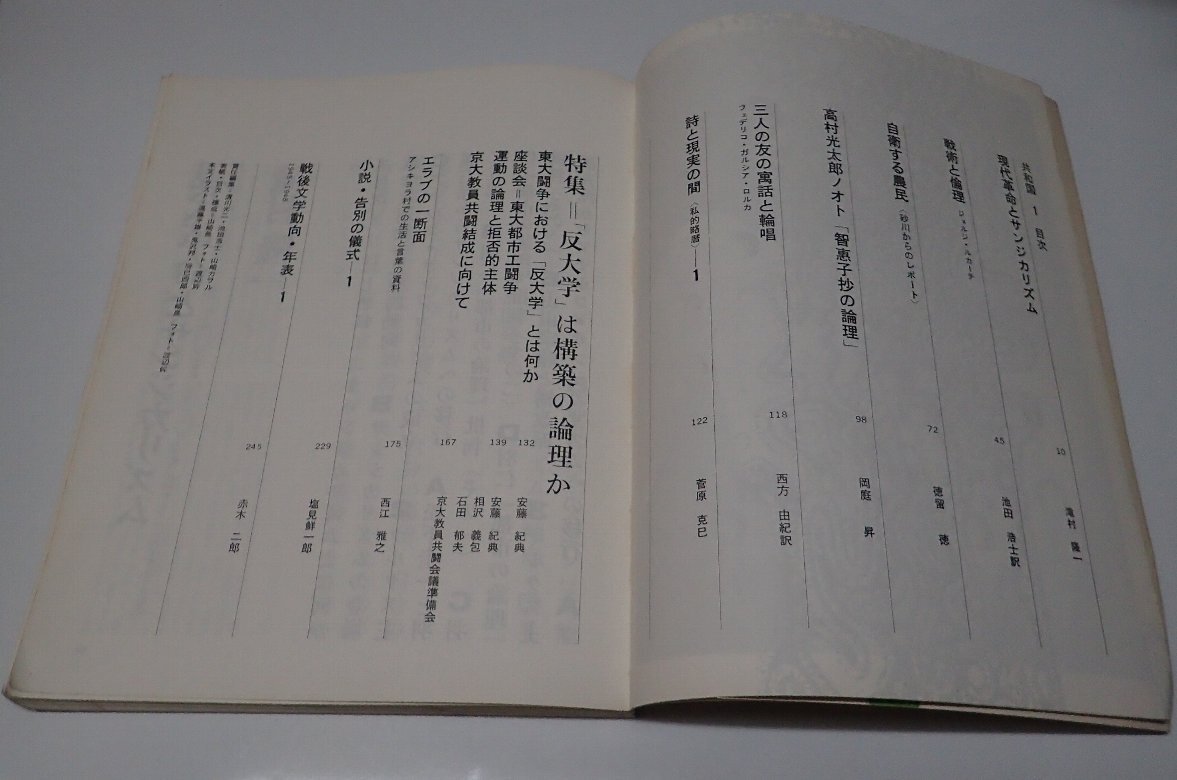 共和国 1 目次
現代革命とサンジカリズム 10 滝村 隆一
戦術と倫理 ジェルジ・ルカーチ 45 池田 浩士訳
自衛する農民 〈砂川からのレポート〉 72 徳留 徳
高村光太郎ノオト「智恵子抄の論理」 98 岡庭 昇
三人の友の寓話と輪唱 118 西方 由紀訳
フェデリコ・ガルシア・ロルカ
詩と現実の間 〈私的略暦〉—1 122 菅原 克己
特集=「反大学」は構築の論理か
東大闘争における「反大学」とは何か 132 安藤 紀典
座談会=東大都市工闘争 139 安藤 紀典
運動の論理と拒否的主体 相沢 義包
石田 郁夫
京大教員共闘結成に向けて 167 京大教員共闘会議準備会
エラブの一断面 175 西江 雅之
アシキヨラ村での生活と言葉の資料
小説・告別の儀式—1 229 塩見鮮一郎
戦後文学動向・年表—1 245 赤木 二郎